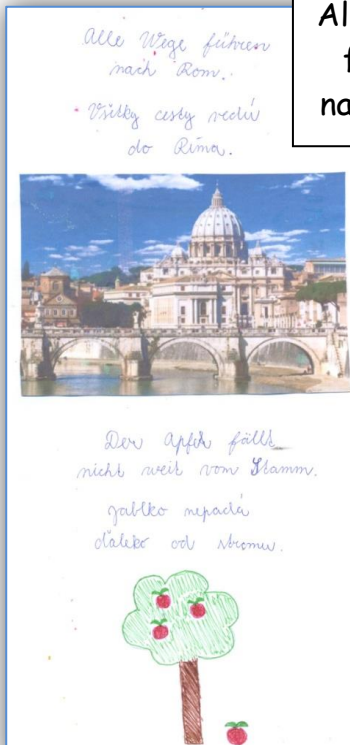 Alle Wege führen
nach Rom.
Všetky cesty vedú
do Ríma.
Al
f
na
Der Apfel fällt
nicht weit vom Stamm.
Jablko nepadá
ďaleko od stromu.